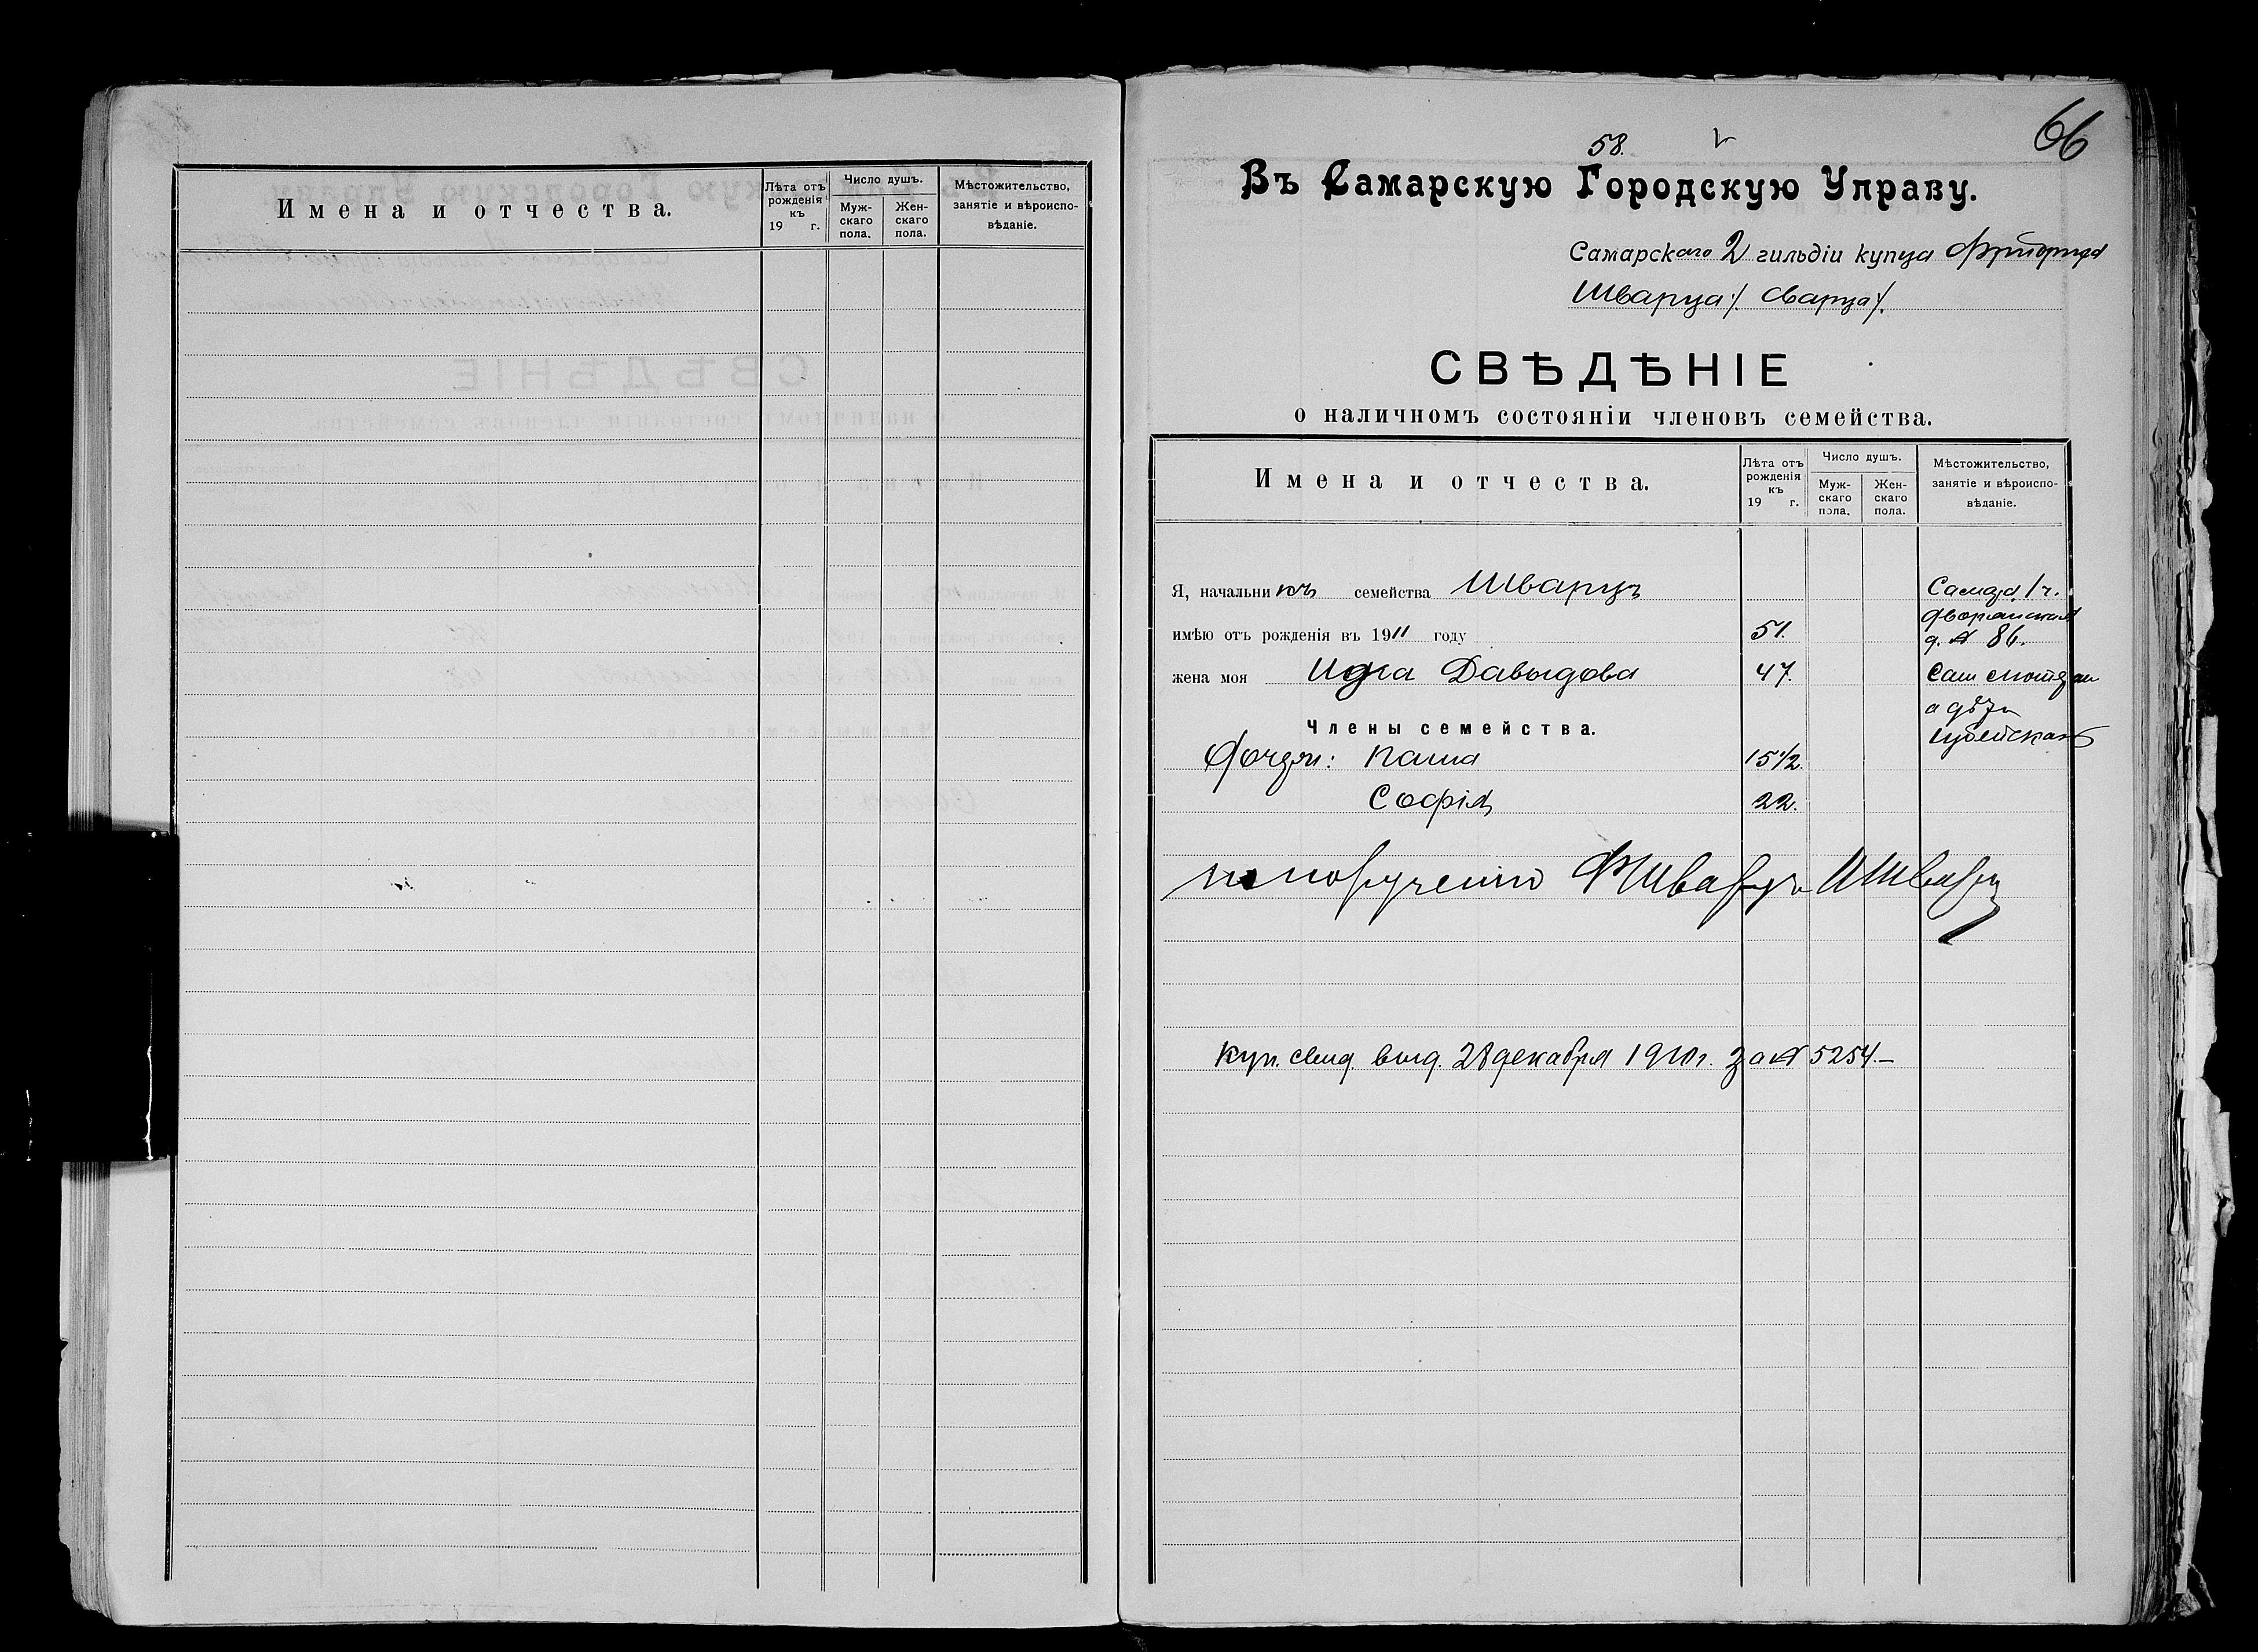 Имена и отчества.
Лѣта отъ рожденія къ 19 г.
Число душъ.
Муж-скаго пола.
Жен-скаго пола.
Мѣстожительство, занятіе и вѣроиспо-вѣданіе.
66
58.
Въ Самарскую Городскую Управу.
Самарскаго 2 гильдіи купца Фридриха
Шварца /. Сварца /.
СВѢДѢНІЕ
о наличномъ состояніи членовъ семейства.
Имена и отчества.
Лѣта отъ рожденія къ 19 г.
Число душъ.
Муж-скаго пола.
Жен-скаго пола.
Мѣстожительство, занятіе и вѣроиспо-вѣданіе.
Я, начальникъ семейства Шварцъ Самара 1 ч.
Дворянская
имѣю отъ рожденія въ 1911 году 51. д. № 86.
жена моя Ида Давыдова 47. Сам
а дѣти
Члены семейства.
Дочери: Паша 15 1/2.
Софія 22.
по порученію Ф Шварца И Шварц
Куп. свид. выд. 28 декабря 1910 г. за № 5254.—